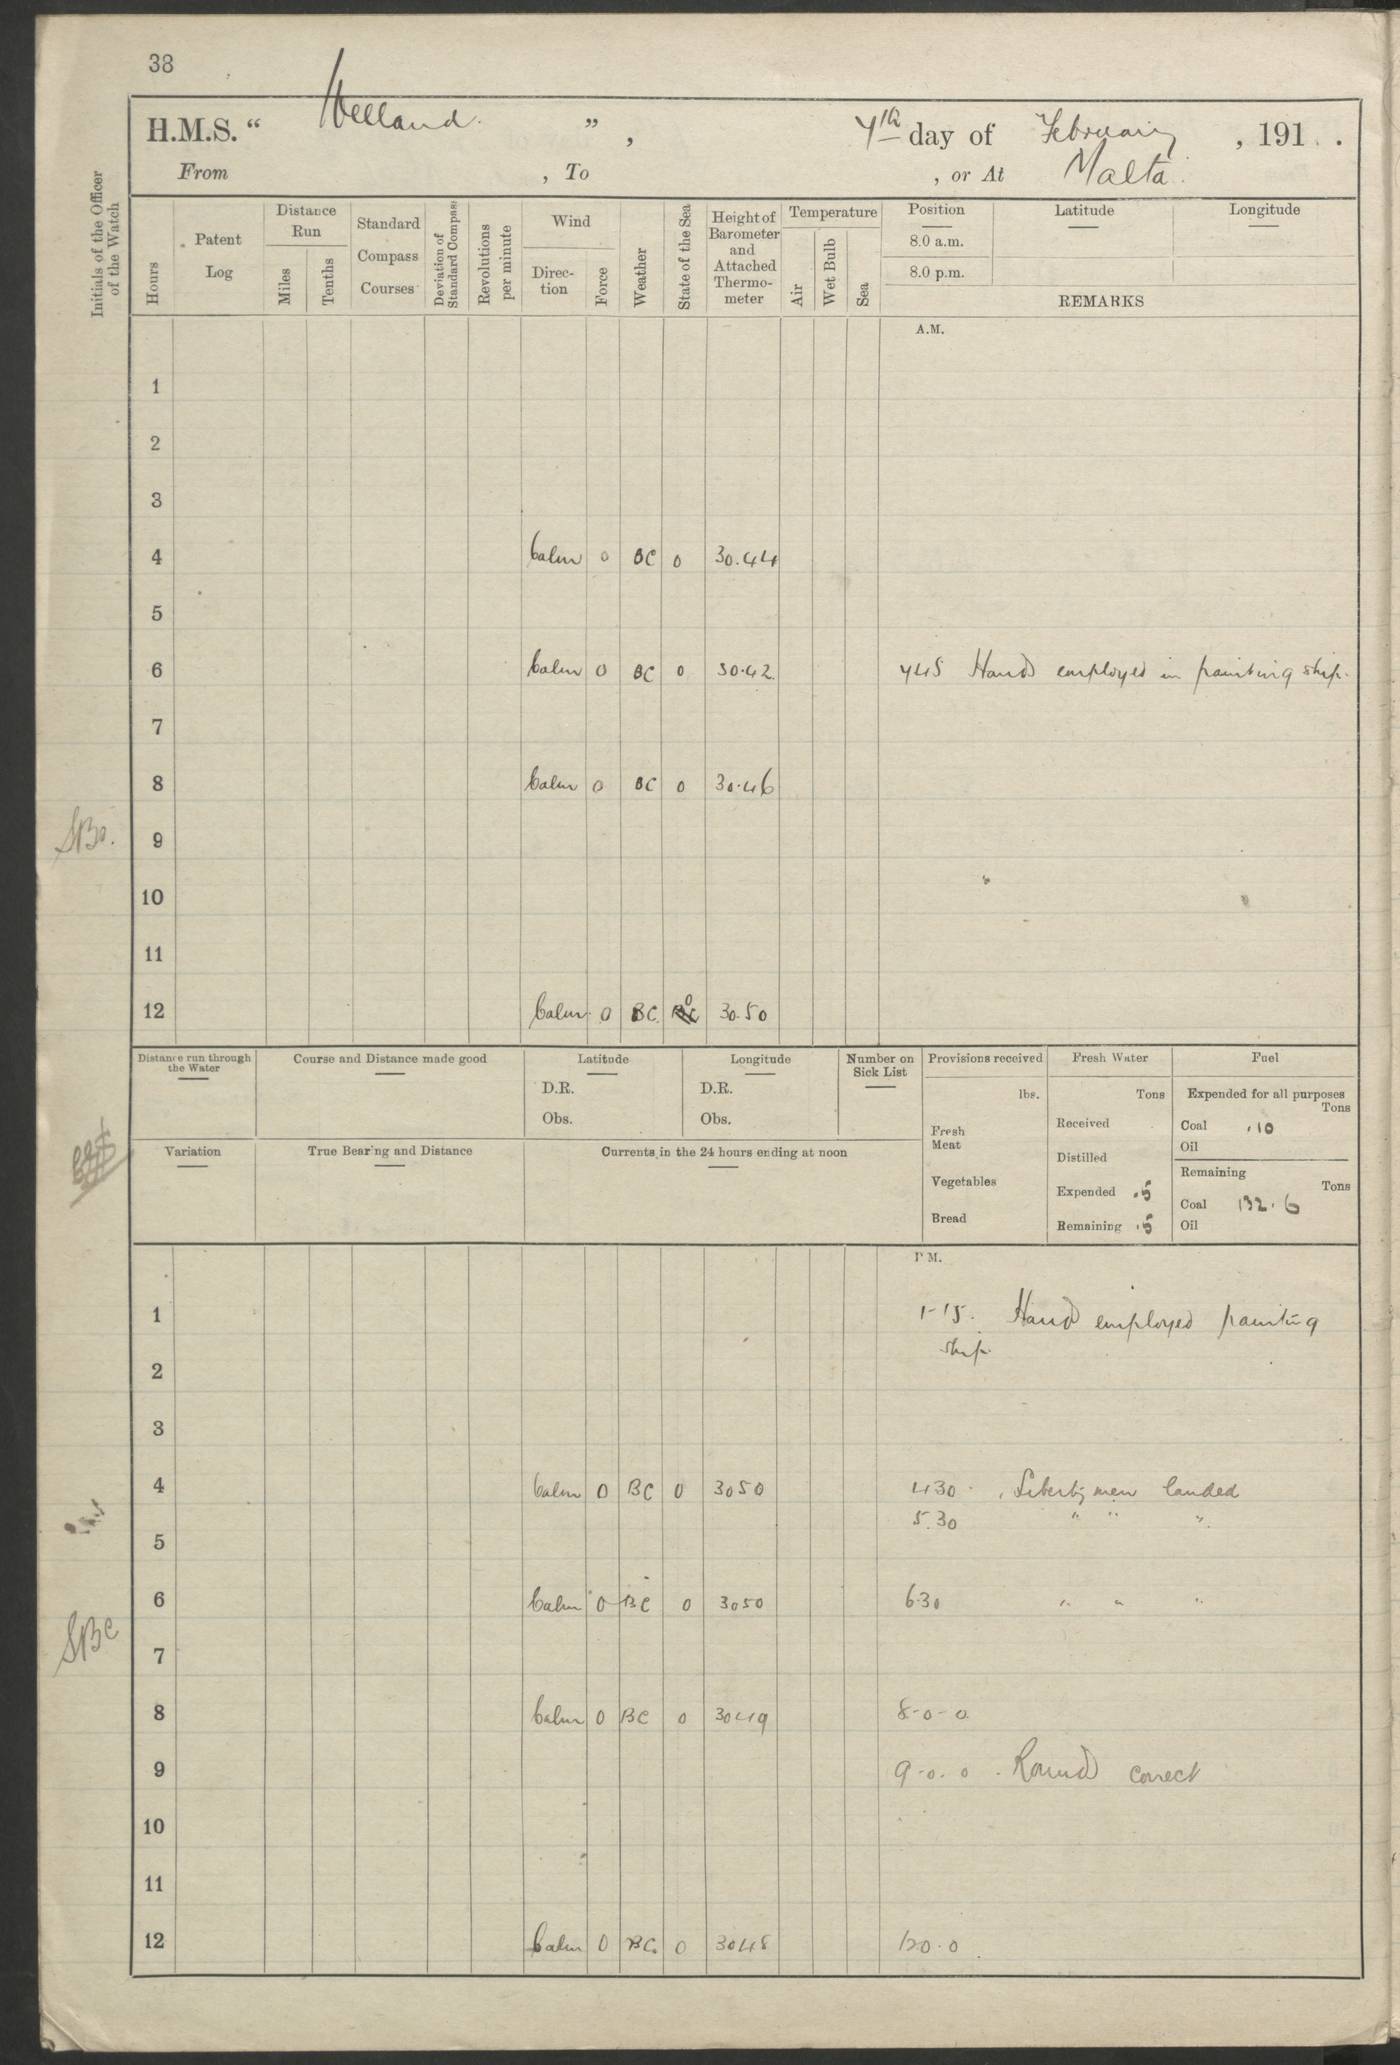 38
H.M.S. “ Welland. ” , 7th day of February , 191 .
From , To , or At Malta.
Initials of the Officer of the Watch
Hours
Patent Log
Distance Run
Miles
Tenths
Standard Compass Courses
Deviation of Standard Compass
Revolutions per minute
Wind
Direc-tion
Force
Weather
State of the Sea
Height of Barometer and Attached Thermo-meter
Temperature
Air
Wet Bulb
Sea
Position Latitude Longitude
8.0 a.m.
8.0 p.m.
REMARKS
A.M.
1
2
3
4 Calm 0 BC 0 30.44
5
6 Calm 0 BC 0 30.42 745 Hands employed in painting ship.
7
8 Calm 0 BC 0 30.46
9
10
11
12 Calm 0 BC 0 30.50
Distance run through the Water
Course and Distance made good
Latitude
D.R.
Obs.
Longitude
D.R.
Obs.
Number on Sick List
Variation
True Bearing and Distance
Currents in the 24 hours ending at noon
Provisions received
lbs.
Fresh Meat
Vegetables
Bread
Fresh Water
Tons
Received
Distilled
Expended .5
Remaining .5
Fuel
Expended for all purposes
Tons
Coal .10
Oil
Remaining
Tons
Coal 132.6
Oil
P.M.
1 1-15. Hand employed painting
ship.
2
3
4 Calm 0 BC 0 3050 430 Liberty men landed
5.30 " " "
5
6 Calm 0 BC 0 3050 6.30 " " "
7
8 Calm 0 BC 0 3049 8-0-0
9 9-0.0 . Round correct
10
11
12 Calm 0 BC. 0 3048 120.0